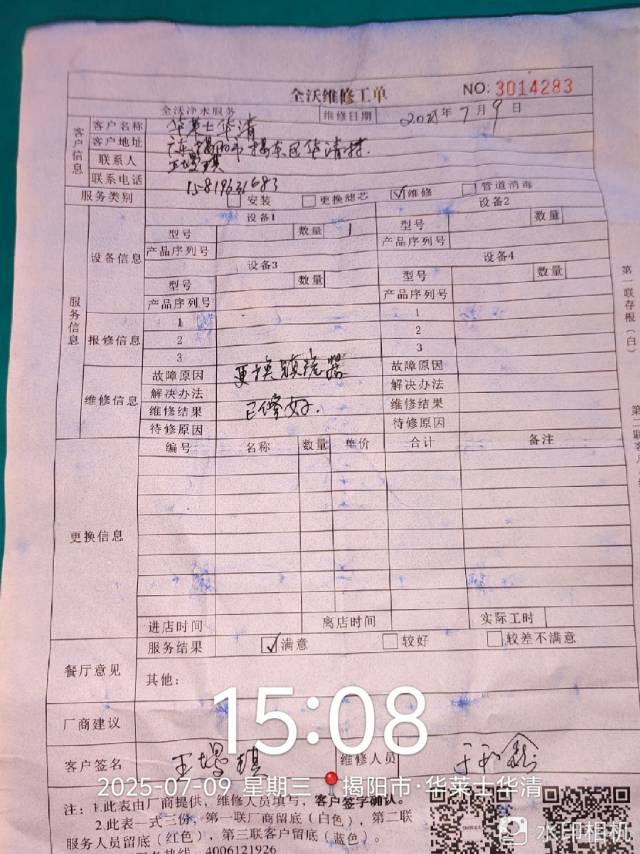 全沃维修工单
NO: 3014283
全沃净水服务 维修日期 年7月9日
客户信息
客户名称 华莱士华清
客户地址 广东揭阳市揭东区华清村.
联系人
联系电话
服务类别 安装 更换滤芯 ☑维修 管道消毒
设备信息 设备1 设备2
型号 数量 1 型号 数量
产品序列号 产品序列号
设备3 设备4
型号 数量 型号 数量
产品序列号 产品序列号
服务信息
报修信息 1 1
2 2
3 3
维修信息 故障原因 更换 故障原因
解决办法 解决办法
维修结果 已修好. 维修结果
待修原因 待修原因
更换信息
编号 名称 数量 单价 合计 备注
进店时间 离店时间 实际工时
餐厅意见
服务结果 ☑满意 较好 较差不满意
其他:
厂商建议
客户签名 维修人员
注: 1.此表由厂商提供，维修人员填写，客户签字确认。
2.此表一式三份，第一联厂商留底（白色），第二联
服务人员留底（红色），第三联客户留底（蓝色）。
服务热线: 4006121926
第一联存根（白）
第二联客户
15:08
2025-07-09 星期三 揭阳市·华莱士华清
水印相机